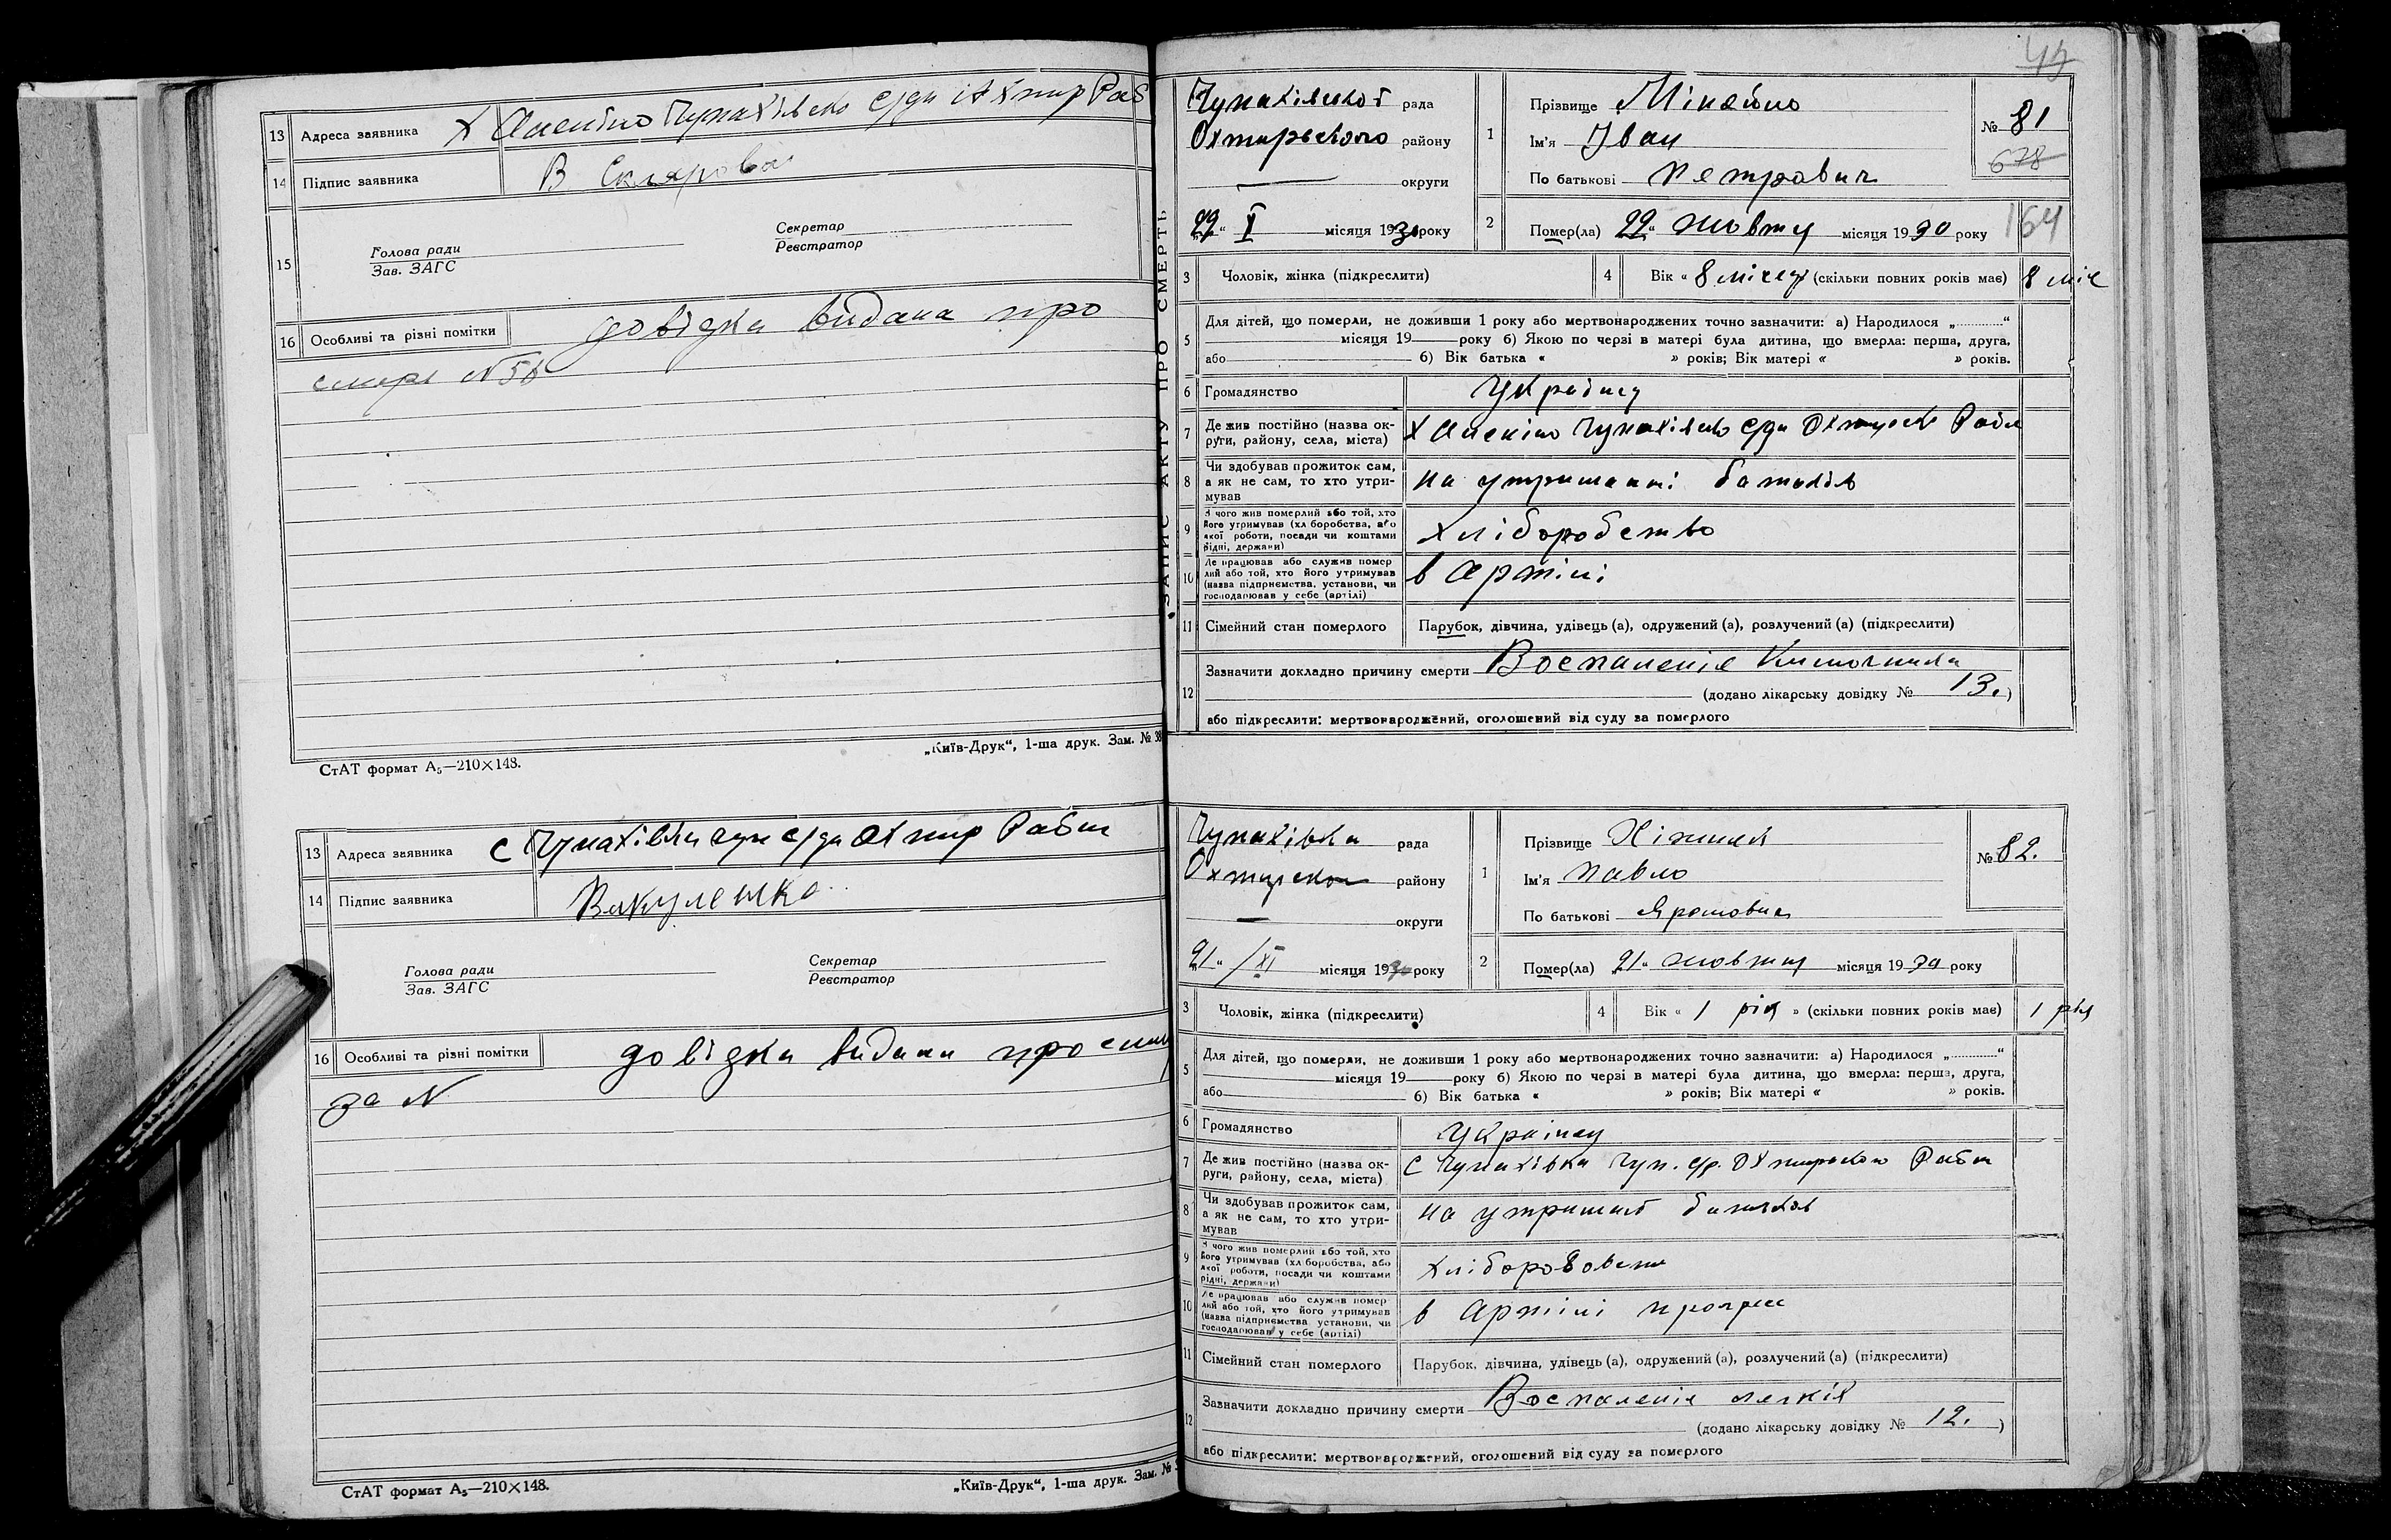 13 Адреса заявника
14 Підпис заявника В Склярова
15 Голова ради
Зав. ЗАГС
Секретар
Реєстратор
16 Особливі та різні помітки довідка видана про
смерт N 56
„Київ-Друк“, 1-ша друк. Зам. № 38
СтАТ формат А₅—210×148.
13 Адреса заявника с Чупахівка
14 Підпис заявника Вакуленко
Голова ради
Зав. ЗАГС
Секретар
Реєстратор
16 Особливі та різні помітки довідка видана про
за N
СтАТ формат А₅—210×148.
„Київ-Друк“, 1-ша друк. Зам. №
49
ЗАПИС АКТУ ПРО СМЕРТЬ
Чупахівської рада
Охтирського району
округи
22 X місяця 1930 року
1 Прізвище
Ім'я Іван
По батькові Петрович
№ 81
678
2 Помер(ла) 22 жовтня місяця 1930 року
164
3 Чоловік, жінка (підкреслити)
4 Вік « 8 місяц (скільки повних років має) 8 міс
5 Для дітей, що померли, не доживши 1 року або мертвонароджених точно зазначити: а) Народилося „ “
місяця 19 року б) Якою по черзі в матері була дитина, що вмерла: перша, друга,
або б) Вік батька « » років; Вік матері « » років.
6 Громадянство Українец
7 Де жив постійно (назва ок-
руги, району, села, міста)
8 Чи здобував прожиток сам,
а як не сам, то хто утри-
мував
на утриманні батьків
9 З чого жив померлий або той, хто
його утримував (хліборобства, або
якої роботи, посади чи коштами
рідні, держави)
хліборобство
10 Де працював або служив помер
лий або той, хто його утримував
(назва підприємства, установи, чи
господарював у себе (артілі)
в Артілі
11 Сімейний стан померлого Парубок, дівчина, удівець (а), одружений (а), розлучений (а) (підкреслити)
12 Зазначити докладно причину смерти Воспаленіе Кишочника
(додано лікарську довідку № 13.)
або підкреслити: мертвонароджений, оголошений від суду за померлого
Чупахівка рада
району
округи
21 / XI місяця 1930 року
1 Прізвище
Ім'я Павло
По батькові
№ 82.
2 Помер(ла) 21 жовтня місяця 1930 року
3 Чоловік, жінка (підкреслити)
4 Вік « 1 рік » (скільки повних років має) 1 рік
5 Для дітей, що померли, не доживши 1 року або мертвонароджених точно зазначити: а) Народилося „ “
місяця 19 року б) Якою по черзі в матері була дитина, що вмерла: перша, друга,
або б) Вік батька « » років; Вік матері « » років.
6 Громадянство Українец
7 Де жив постійно (назва ок-
руги, району, села, міста)
с Чупахівка Чуп. с/р.
8 Чи здобував прожиток сам,
а як не сам, то хто утри-
мував
на
9 З чого жив померлий або той, хто
його утримував (хліборобства, або
якої роботи, посади чи коштами
рідні, держави)
10 Де працював або служив помер
лий або той, хто його утримував
(назва підприємства, установи, чи
господарював у себе (артілі)
в Артілі прогрес
11 Сімейний стан померлого Парубок, дівчина, удівець (а), одружений (а), розлучений (а) (підкреслити)
12 Зазначити докладно причину смерти Воспаленіе легкіх
(додано лікарську довідку № 12. )
або підкреслити: мертвонароджений, оголошений від суду за померлого